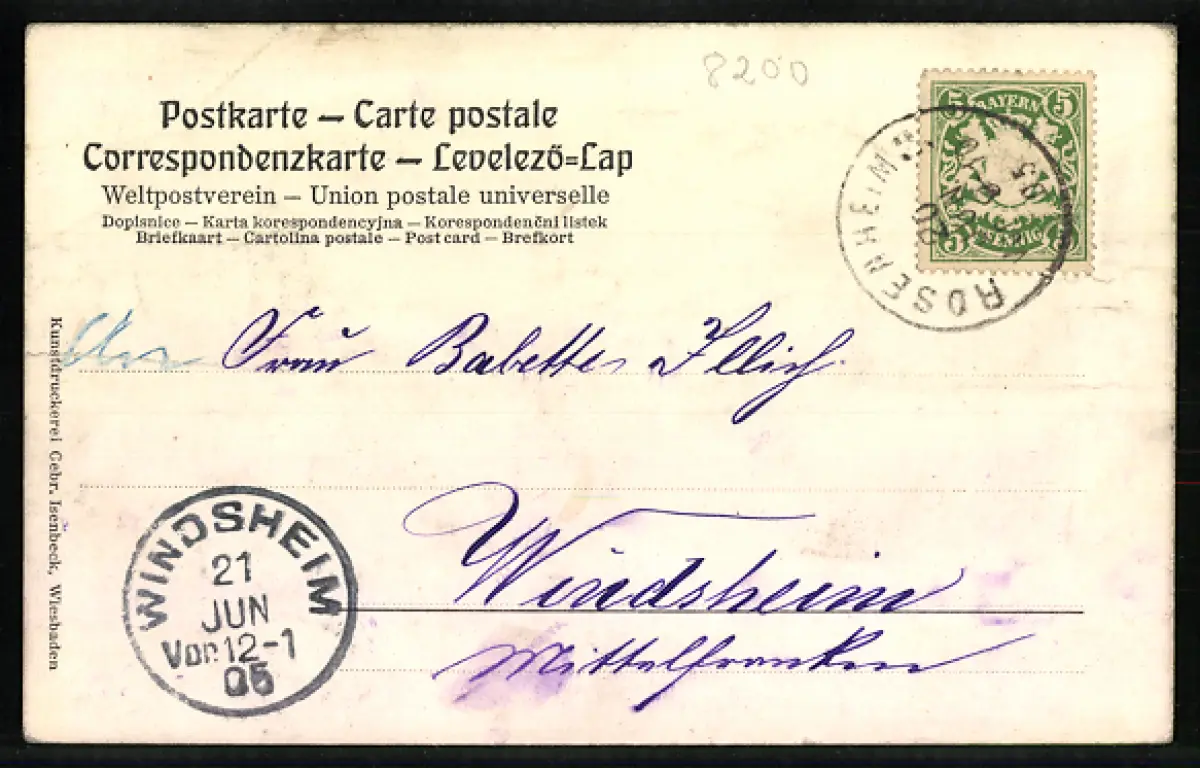 8200
Postkarte — Carte postale
Correspondenzkarte — Levelező=Lap
Weltpostverein — Union postale universelle
Dopisnice — Karta korespondencyjna — Korespondenční listek
Briefkaart — Cartolina postale — Post card — Brefkort
5 BAYERN 5
5 PFENNIG 5
ROSENHEIM
Frau Babette Illich
Windsheim
Mittelfranken
WINDSHEIM
21
JUN
Vor. 12-1
05
Kunstdruckerei Gebr. Isenbeck, Wiesbaden